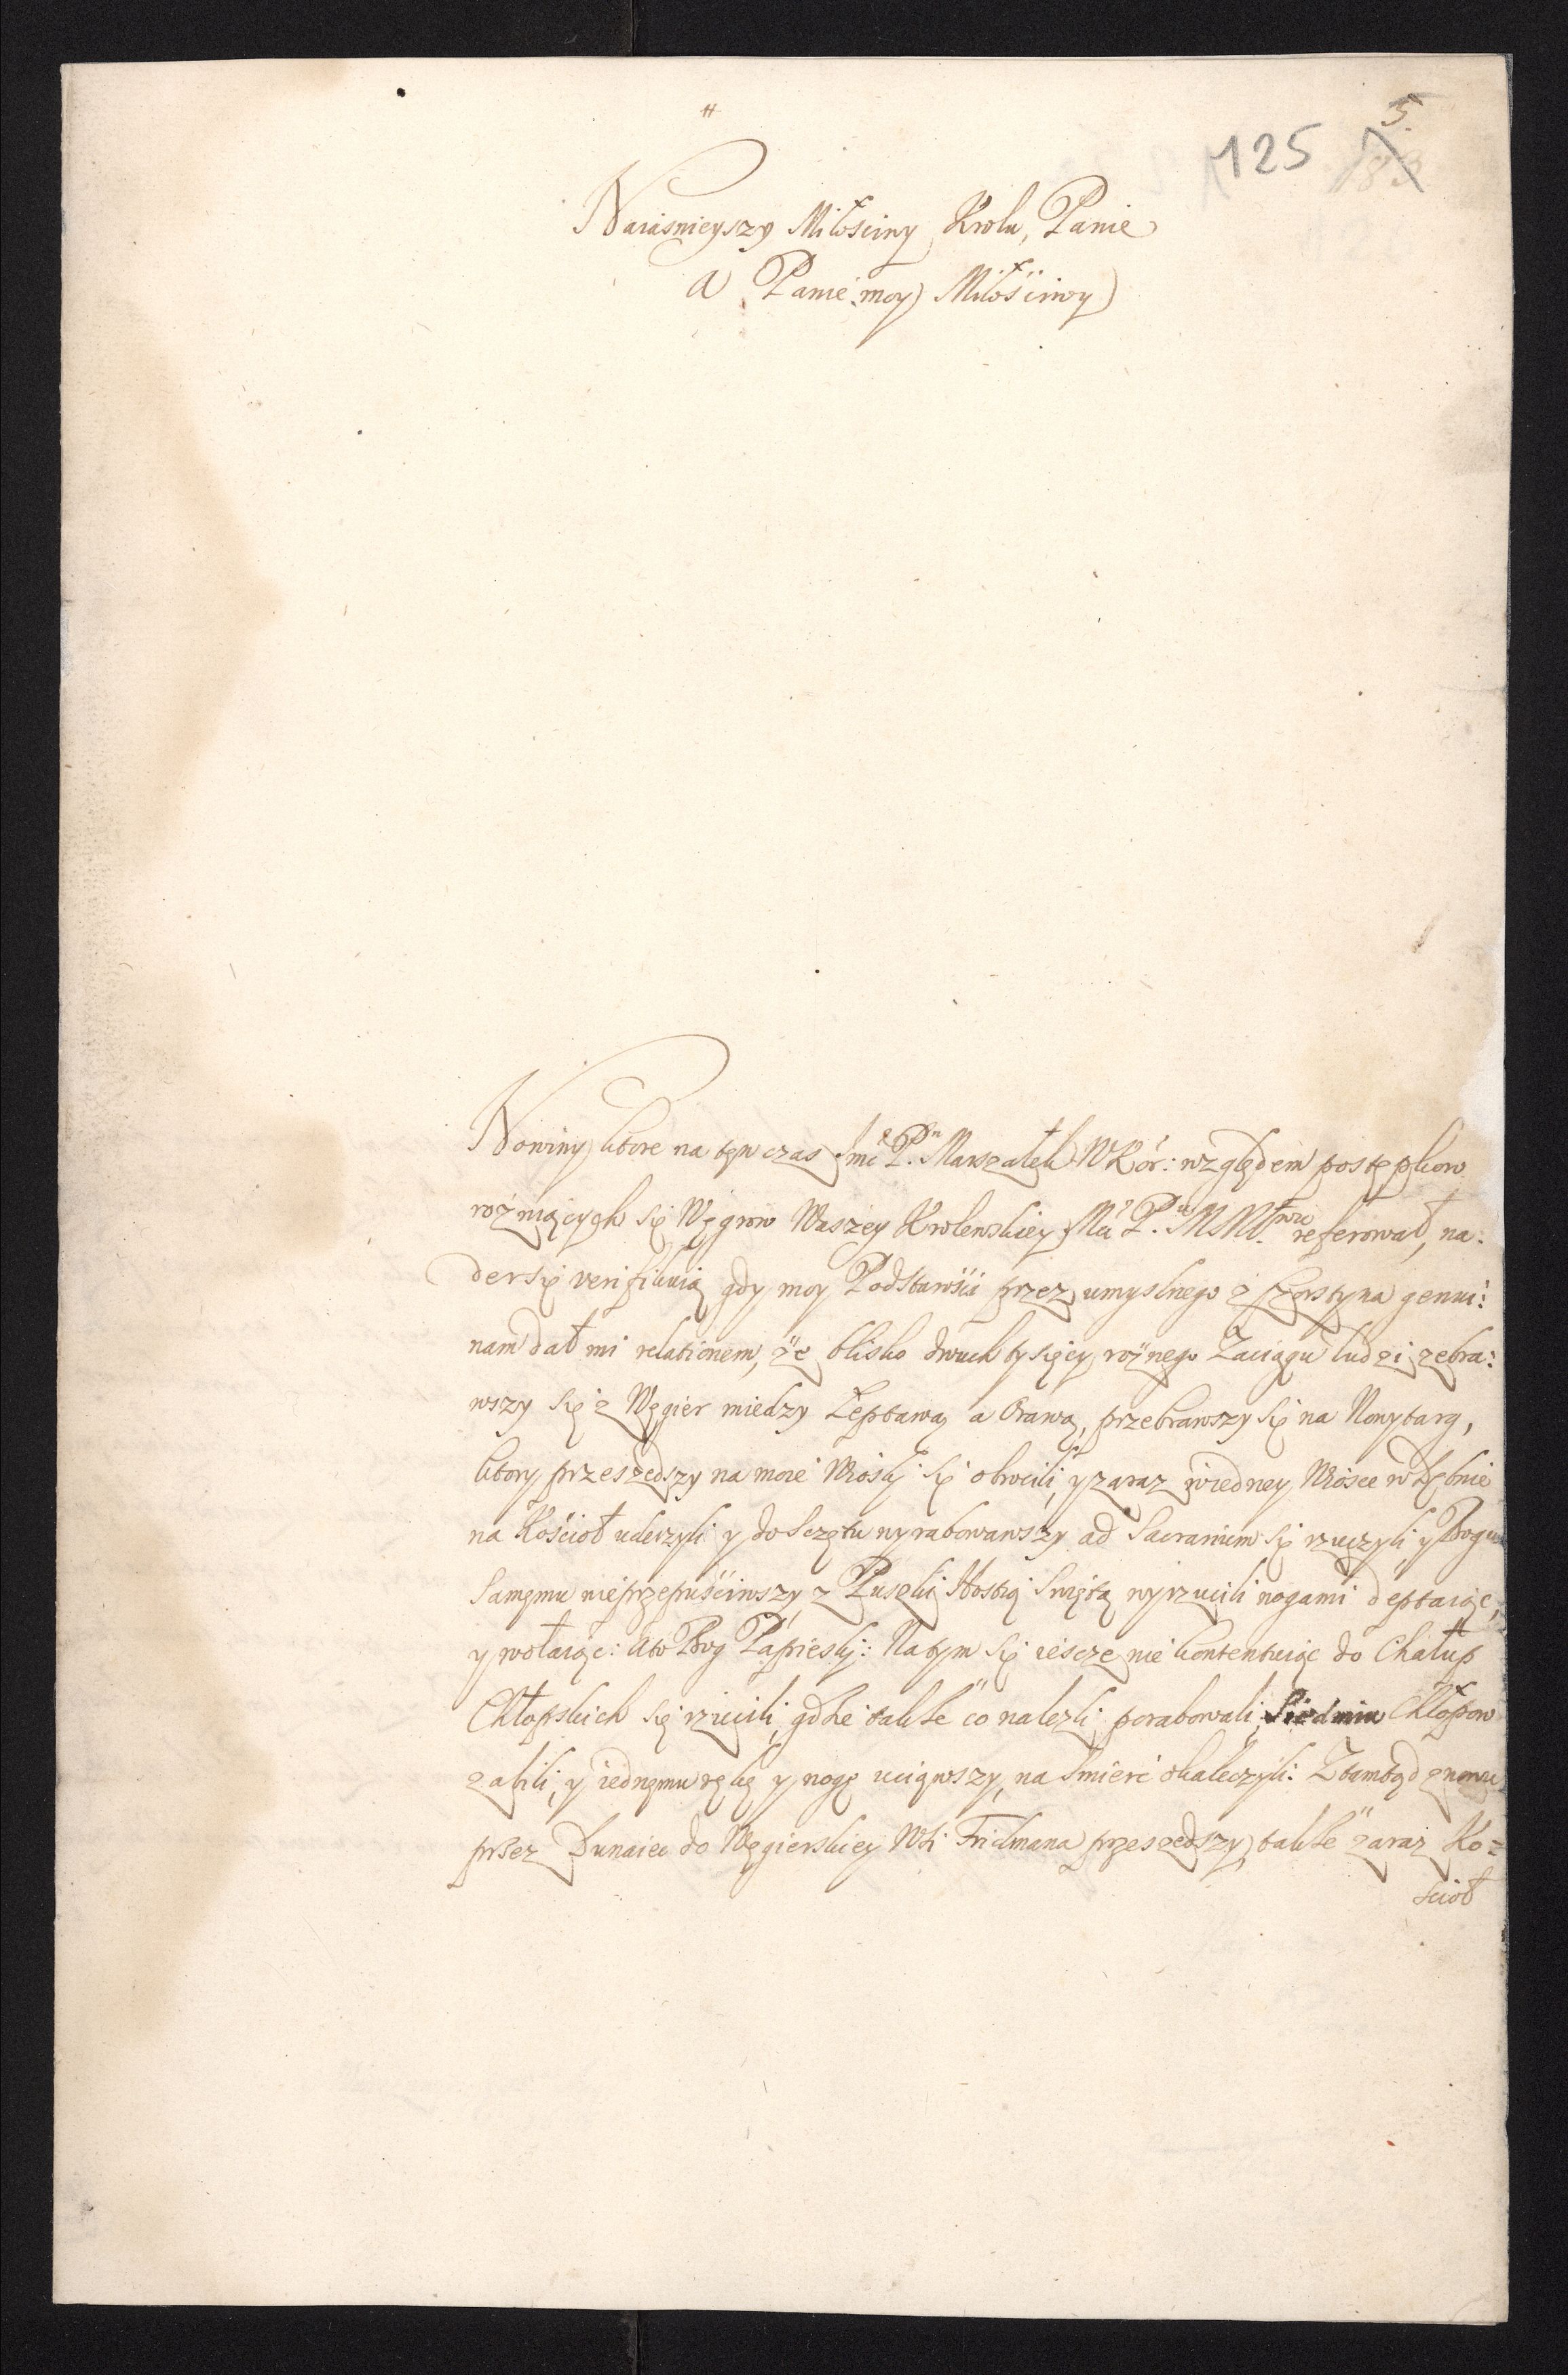 #
5.
125 183
Naiasnieyszy Miłosciwy Krolu, Panie
A Panie moy Miłościwy
Nowiny ktore na ten czas Jmć Pn Marszałek WKor: względem postępkow
rożniących się Węgrow Waszey Krolewskiey Mci P. MMwu referował, na:
der się verifikuią gdy moy Podstarości przez umyslnego z Czorstyna genui:
nam dał mi relationem, że blisko dwuch tysięcy rożnego Zaciągu ludzi zebra:
wszy się z Węgier miedzy Leptawą a Orawą, przebrawszy się na Nowytarg,
ktory przeszedszy na moie Wioski się obrocili, y zaraz w iedney Wiosce w Dębnie
na Kościoł uderzyli y do sczętu wyrabowawszy ad Sacrarium się rzuczyli y Bogu
Samemu nieprzepuściwszy z Puszki Hostią Swiętą wyrzucili nogami deptaiąc,
y wołaiąc: Ato Bog Papieski: Na tym się iescze nie kontentuiąc do Chałup
Chłopskich się rzucili, gdzie także co nalezli porabowali, Siedmiu Chłopow
zabili, y iednemu rękę y nogę uciąwszy, na smierć okaleczyli: Ztamtąd znowu
przez Dunaiec do Węgierskiey Wsi Fridmana przeszedszy, także zaraz Ko=
scioł